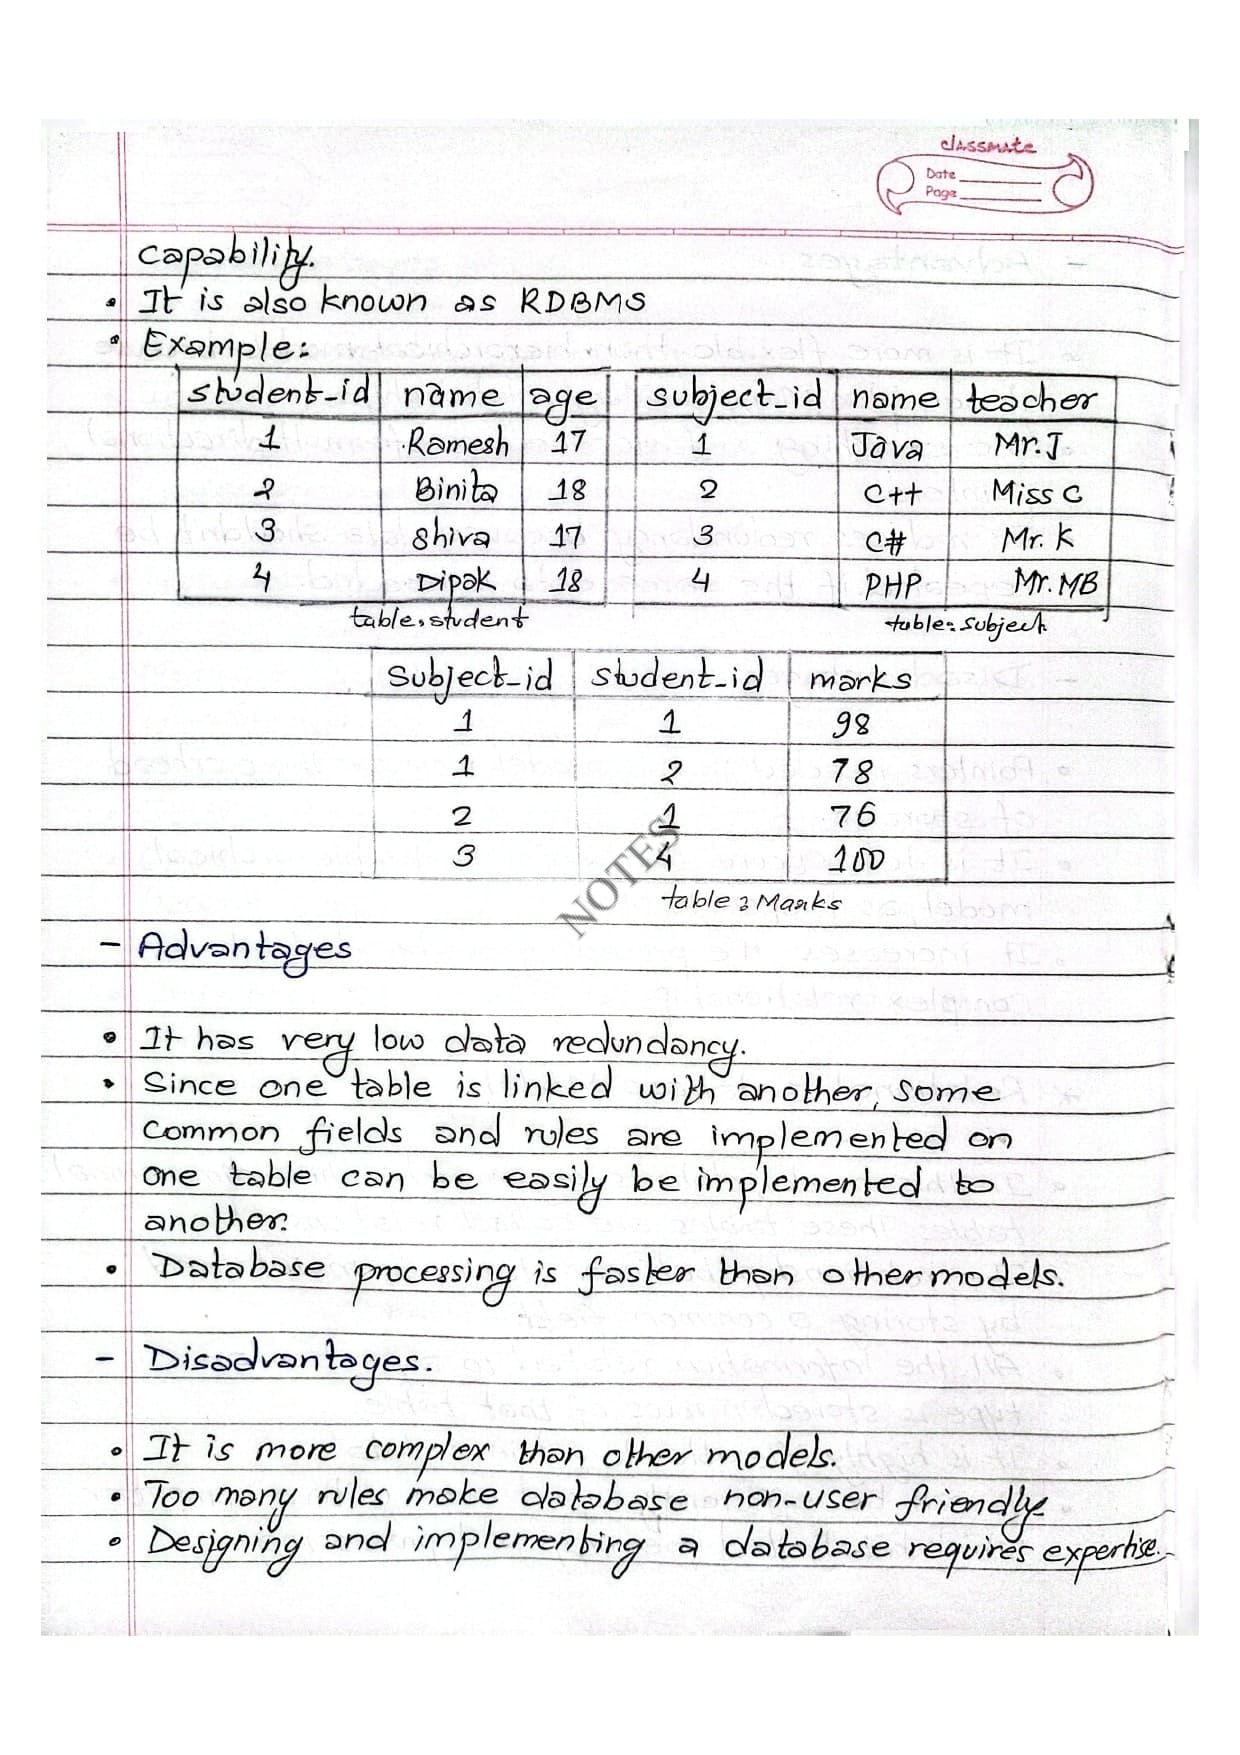 classmate
Date
Page
capability.
• It is also known as RDBMS
• Example:
student_id name age subject_id name teacher
1 Ramesh 17 1 Java Mr.J
2 Binita 18 2 C++ Miss C
3 Shiva 17 3 C# Mr. K
4 Dipak 18 4 PHP Mr.MB
table: student table: subject
Subject_id student_id marks
1 1 98
1 2 78
2 1 76
3 4 100
table: Marks
NOTES
- Advantages
• It has very low data redundancy.
• Since one table is linked with another, some
common fields and rules are implemented on
one table can be easily be implemented to
another.
• Database processing is faster than other models.
- Disadvantages.
• It is more complex than other models.
• Too many rules make database non-user friendly.
• Designing and implementing a database requires expertise.